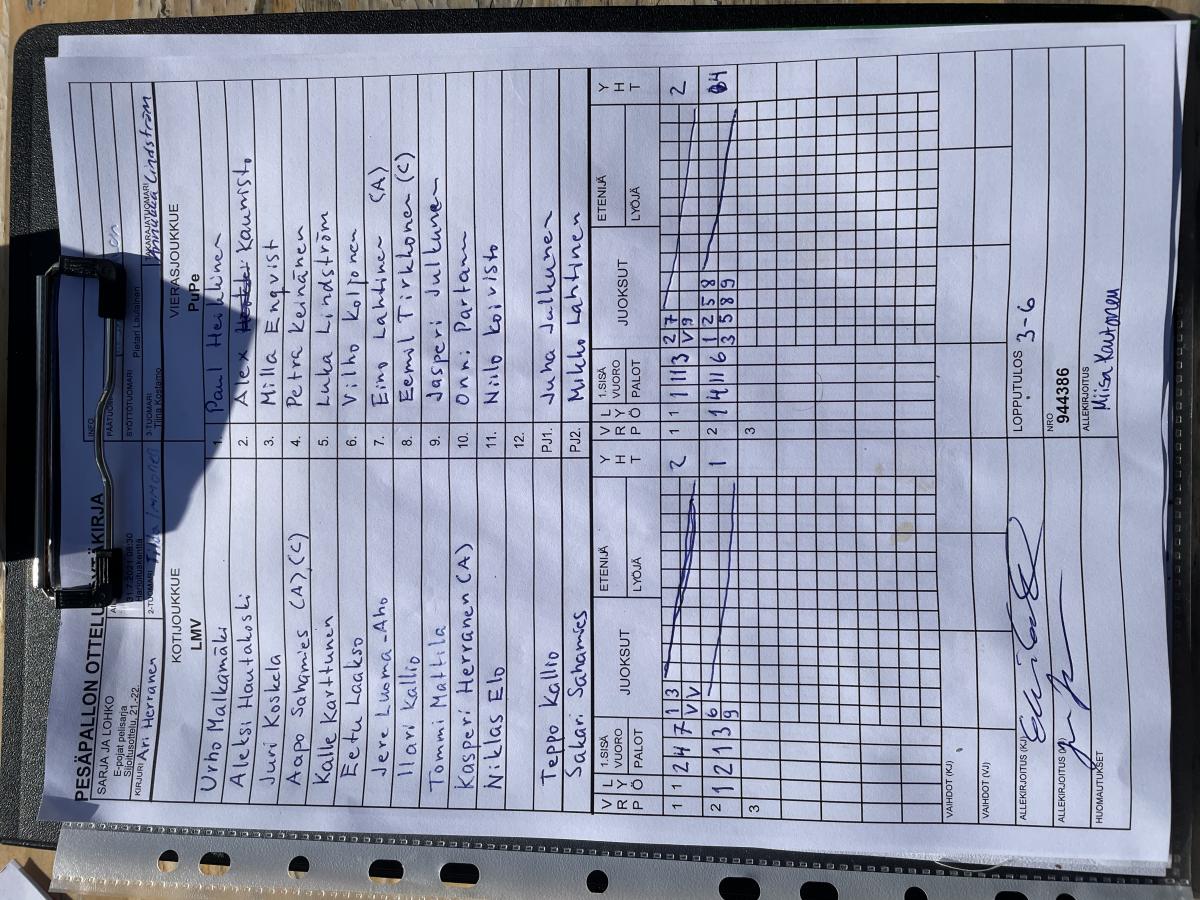 PESÄPALLON OTTELUPÖYTÄKIRJA
SARJA JA LOHKO
E-pojat pelisarja
Sijoitusottelu, 21.-22.
INFO
31.7.2021 08:30
Harjoituskenttä
SYÖTTÖTUOMARI Pietari Laulainen
KIRJURI Ari Herranen
2-TUOMARI Immonen
3-TUOMARI
Tiina Kostamo
Lindström
KOTIJOUKKUE
LMV
VIERASJOUKKUE
PuPe
Urho Malkamäki 1. Paul Heikkinen
Aleksi Hautakoski 2. Alex Kaunisto
Juri Koskela 3. Milla Enqvist
Aapo Sahamies (A),(C) 4. Petra Keinänen
Kalle Karttunen 5. Luka Lindström
Eetu Laakso 6. Vilho Kolponen
Jere Luoma-Aho 7. Eino Lahtinen (A)
Ilari Kallio 8. Eemil Tirkkonen (C)
Tommi Mattila 9. Jasperi Julkunen
Kasperi Herranen (A) 10. Onni Partanen
Niklas Elo 11. Niilo Koivisto
12.
Teppo Kallio PJ1. Juha Julkunen
Sakari Sahamies PJ2. Mikko Lahtinen
V R P L Y Ö 1.SISÄ VUORO PALOT JUOKSUT ETENIJÄ LYÖJÄ Y H T V R P L Y Ö 1.SISÄ VUORO PALOT JUOKSUT ETENIJÄ LYÖJÄ Y H T
1 1 2 4 7 1 3 2 1 1 1 11 3 2 7 2
V V V 9
2 1 2 1 3 6 1 2 1 4 11 6 1 2 5 8 4
9 3 5 8 9
3 3
VAIHDOT (KJ)
VAIHDOT (VJ)
ALLEKIRJOITUS (KJ)
LOPPUTULOS 3-6
ALLEKIRJOITUS (VJ)
NRO
944386
HUOMAUTUKSET
ALLEKIRJOITUS
Miisa Kautonen